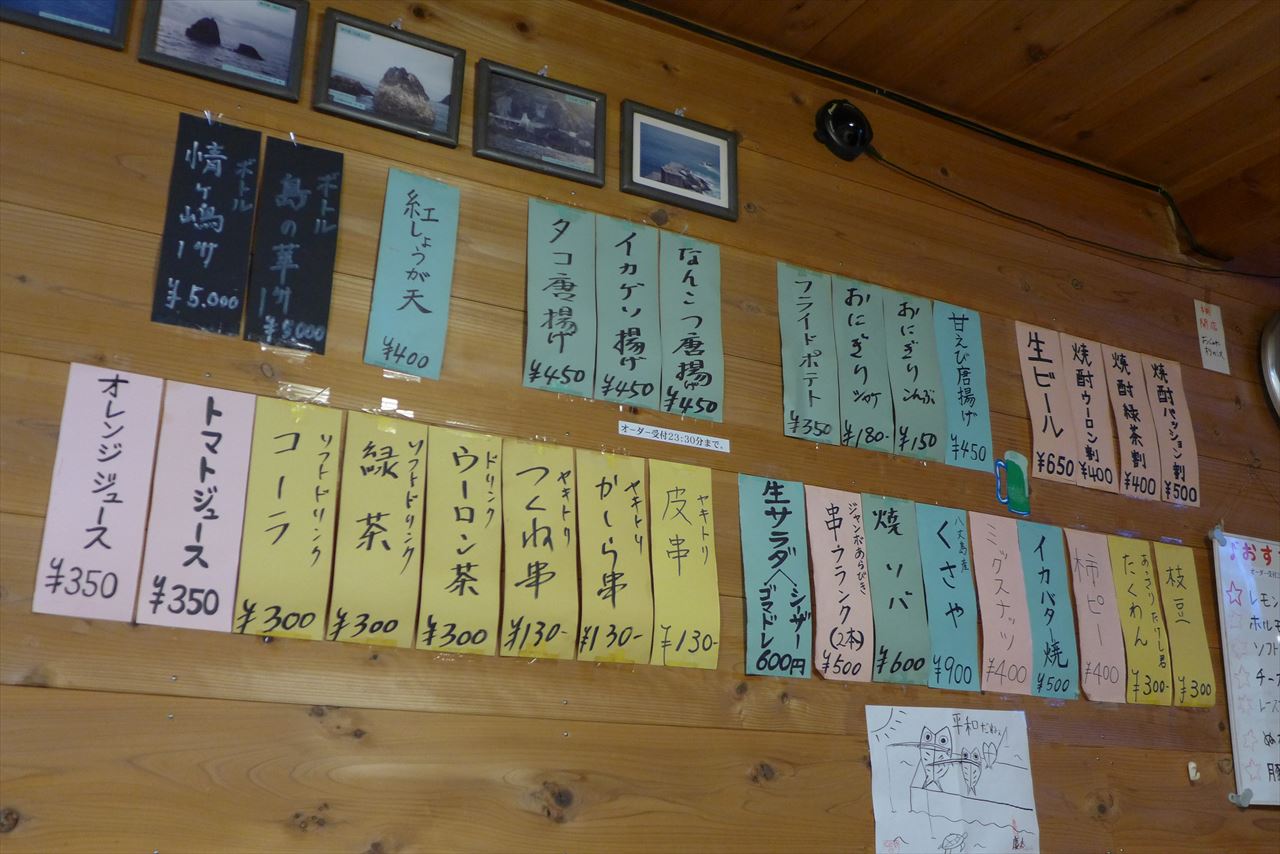 ボトル
情ケ嶋
¥5,000
ボトル
島の華
¥5,000
紅しょうが天
¥400
タコ唐揚げ
¥450
イカゲソ揚げ
¥450
なんこつ唐揚
¥450
フライドポテト
¥350
おにぎり シャケ
¥180-
おにぎり こんぶ
¥150
甘えび唐揚げ
¥450
生ビール
¥650
焼酎ウーロン割
¥400
焼酎緑茶割
¥400
焼酎パッション割
¥500
オーダー受付23:30分まで。
オレンジジュース
¥350
トマトジュース
¥350
ソフトドリンク
コーラ
¥300
ソフトドリンク
緑茶
¥300
ドリンク
ウーロン茶
¥300
ヤキトリ
つくね串
¥130-
ヤキトリ
かしら串
¥130-
ヤキトリ
皮串
¥130-
生サラダ
シーザー
ゴマドレ
600円
ジャンボあらびき
串フランク(2本)
¥500
焼ソバ
¥600
八丈島産
くさや
¥900
ミックスナッツ
¥400
イカバタ焼
¥500
柿ピー
¥400
あっさりたけし君
たくわん
¥300-
枝豆
¥300
おす
レモン
ホルモ
ソフト
チーア
レース
平和だねぇ